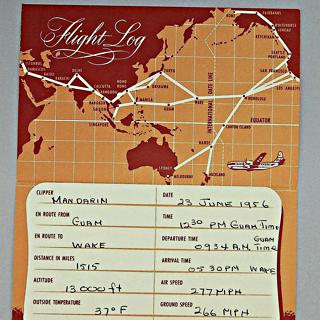 Flight Log
FAIRBANKS
WHITEHORSE
JUNEAU
KETCHIKAN
SEATTLE
PORTLAND
SAN FRANCISCO
LOS ANGELES
ISTANBUL
BEIRUT
KARACHI
DELHI
CALCUTTA
RANGOON
BANGKOK
SAIGON
SINGAPORE
HONG KONG
MANILA
TOKYO
GUAM
WAKE
HONOLULU
INTERNATIONAL DATE LINE
EQUATOR
CANTON ISLAND
NANDI
SYDNEY
MELBOURNE
AUCKLAND
CLIPPER MANDARIN
DATE 23 JUNE 1956
EN ROUTE FROM GUAM
TIME 1230 PM GUAM TIME
EN ROUTE TO WAKE
DEPARTURE TIME 0934 A.M. GUAM TIME
DISTANCE IN MILES 1515
ARRIVAL TIME 0530 PM WAKE
ALTITUDE 13000 ft
AIR SPEED 277 MPH
OUTSIDE TEMPERATURE 37°F
GROUND SPEED 266 MPH